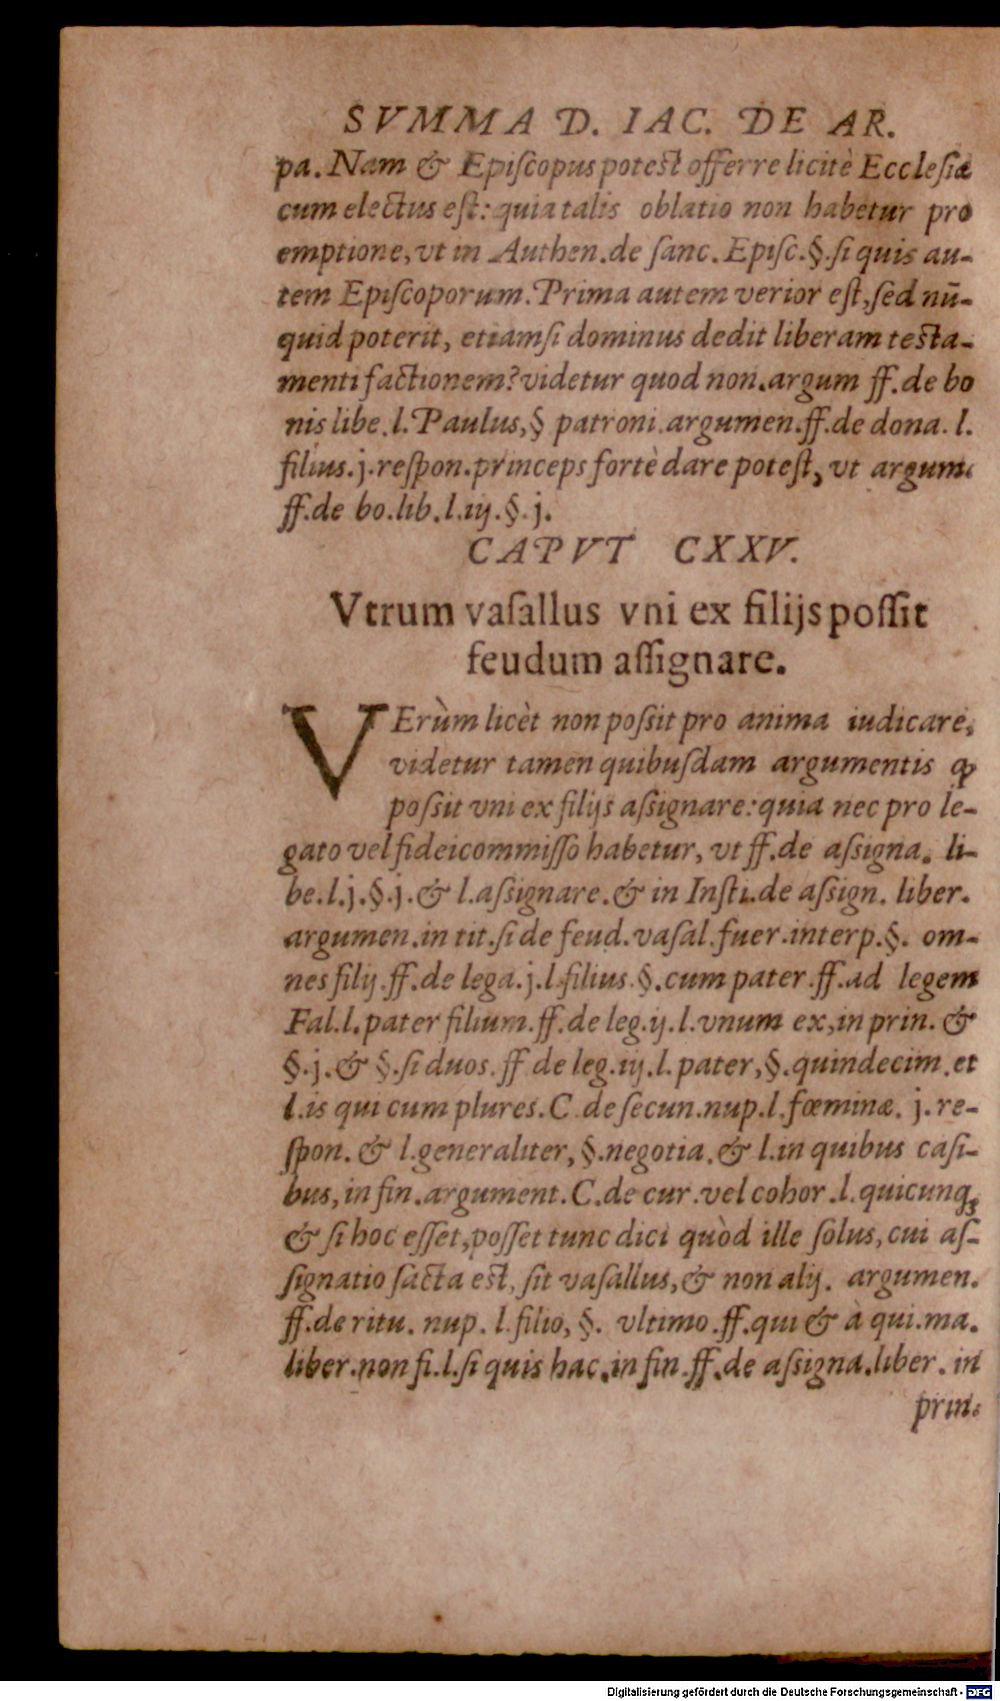 SVMMA D. IAC. DE AR.
pa. Nam & Episcopus potest offerre licitè Ecclesiæ
cum electus est: quia talis oblatio non habetur pro
emptione, vt in Authen. de sanc. Episc. §. si quis au-
tem Episcoporum. Prima autem verior est, sed nū-
quid poterit, etiamsi dominus dedit liberam testa-
menti factionem? videtur quod non. argum ff. de bo
nis libe. l. Paulus, § patroni. argumen. ff. de dona. l.
filius. j. respon. princeps fortè dare potest, vt argum.
ff. de bo. lib. l. iij. §. j.
CAPVT CXXV.
Vtrum vasallus vni ex filijs possit
feudum assignare.
VErùm licèt non possit pro anima iudicare,
videtur tamen quibusdam argumentis ꝙ
possit vni ex filijs assignare: quia nec pro le-
gato vel fideicommisso habetur, vt ff. de assigna. li-
be. l. j. §. j. & l. assignare. & in Insti. de assign. liber.
argumen. in tit. si de feud. vasal. fuer. interp. §. om-
nes filij. ff. de lega. j. l. filius. §. cum pater. ff. ad legem
Fal. l. pater filium. ff. de leg. ij. l. vnum ex, in prin. &
§. j. & §. si duos. ff de leg. iij. l. pater, §. quindecim. et
l. is qui cum plures. C. de secun. nup. l. fœminæ. j. re-
spon. & l. generaliter, §. negotia. & l. in quibus casi-
bus, in fin. argument. C. de cur. vel cohor. l. quicunq;
& si hoc esset, posset tunc dici quòd ille solus, cui as-
signatio facta est, sit vasallus, & non alij. argumen.
ff. de ritu. nup. l. filio, §. vltimo. ff. qui & à qui. ma.
liber. non fi. l. si quis hac. in fin. ff. de assigna. liber. in
prin.
Digitalisierung gefördert durch die Deutsche Forschungsgemeinschaft - DFG